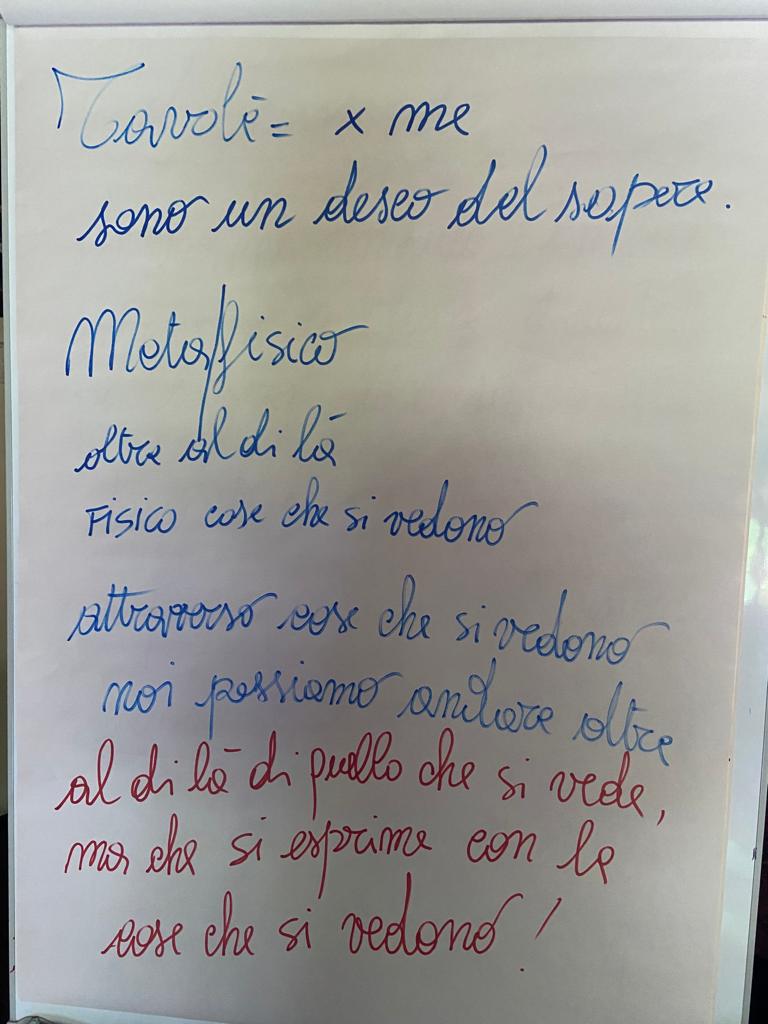 Tavolè = x me
sono un deseo del sapere.
Metafisico
oltre al di là
FISICO cose che si vedono
attraverso cose che si vedono
noi possiamo andare oltre
al di là di quello che si vede,
ma che si esprime con le
cose che si vedono!